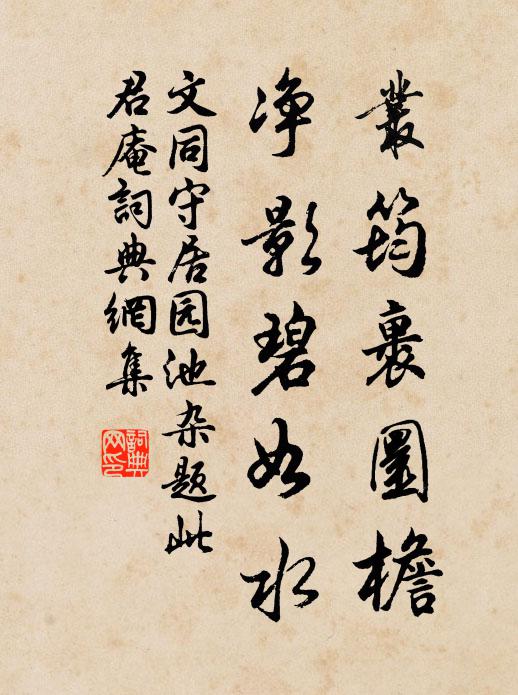 叢筠裹圜檐
净影碧如水
文同守居园池杂题此
君庵詞典網集
詞典网印